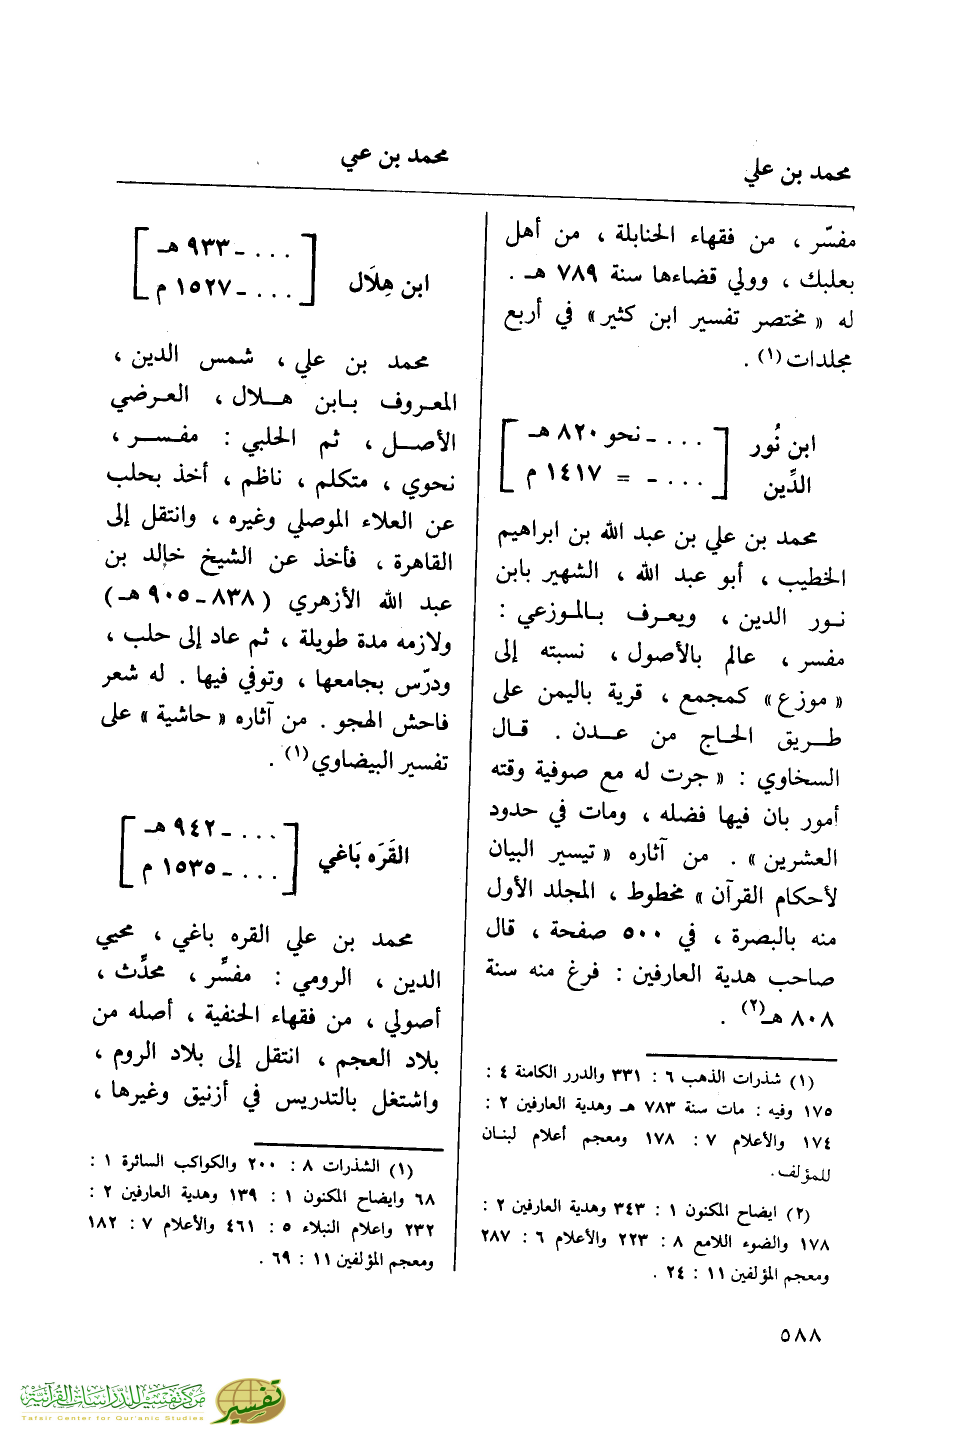 محمد بن علي
محمد بن عي
مفسّر ، من فقهاء الحنابلة ، من أهل
بعلبك ، وولي قضاءها سنة ٧٨٩ هـ .
له « مختصر تفسير ابن كثير » في أربع
مجلدات (١) .
ابن نُور الدِّين
[ . . . ـ نحو ٨٢٠ هـ
. . . ـ = ١٤١٧ م ]
محمد بن علي بن عبد الله بن ابراهيم
الخطيب ، أبو عبد الله ، الشهير بابن
نور الدين ، ويعرف بالموزعي :
مفسر ، عالم بالأصول ، نسبته إلى
« موزع » كمجمع ، قرية باليمن على
طريق الحاج من عدن . قال
السخاوي : « جرت له مع صوفية وقته
أمور بان فيها فضله ، ومات في حدود
العشرين » . من آثاره « تيسير البيان
لأحكام القرآن » مخطوط ، المجلد الأول
منه بالبصرة ، في ٥٠٠ صفحة ، قال
صاحب هدية العارفين : فرغ منه سنة
٨٠٨ هـ (٢) .
(١) شذرات الذهب ٦ : ٣٣١ والدرر الكامنة ٤ :
١٧٥ وفيه : مات سنة ٧٨٣ هـ وهدية العارفين ٢ :
١٧٤ والأعلام ٧ : ١٧٨ ومعجم أعلام لبنان
للمؤلف .
(٢) ايضاح المكنون ١ : ٣٤٣ وهدية العارفين ٢ :
١٧٨ والضوء اللامع ٨ : ٢٢٣ والأعلام ٦ : ٢٨٧
ومعجم المؤلفين ١١ : ٢٤ .
ابن هِلَال
[ . . . ـ ٩٣٣ هـ
. . . ـ ١٥٢٧ م ]
محمد بن علي ، شمس الدين ،
المعروف بابن هلال ، العرضي
الأصل ، ثم الحلبي : مفسر ،
نحوي ، متكلم ، ناظم ، أخذ بحلب
عن العلاء الموصلي وغيره ، وانتقل إلى
القاهرة ، فأخذ عن الشيخ خالد بن
عبد الله الأزهري ( ٨٣٨ ـ ٩٠٥ هـ )
ولازمه مدة طويلة ، ثم عاد إلى حلب ،
ودرّس بجامعها ، وتوفي فيها . له شعر
فاحش الهجو . من آثاره « حاشية » على
تفسير البيضاوي (١) .
القَرَه بَاغي
[ . . . ـ ٩٤٢ هـ
. . . ـ ١٥٣٥ م ]
محمد بن علي القره باغي ، محيي
الدين ، الرومي : مفسِّر ، محدِّث ،
أصولي ، من فقهاء الحنفية ، أصله من
بلاد العجم ، انتقل إلى بلاد الروم ،
واشتغل بالتدريس في أزنيق وغيرها ،
(١) الشذرات ٨ : ٢٠٠ والكواكب السائرة ١ :
٦٨ وايضاح المكنون ١ : ١٣٩ وهدية العارفين ٢ :
٢٣٢ واعلام النبلاء ٥ : ٤٦١ والأعلام ٧ : ١٨٢
ومعجم المؤلفين ١١ : ٦٩ .
٥٨٨
مركز تفسير للدراسات القرآنية
Tafsir Center for Qur'anic Studies
تفسير